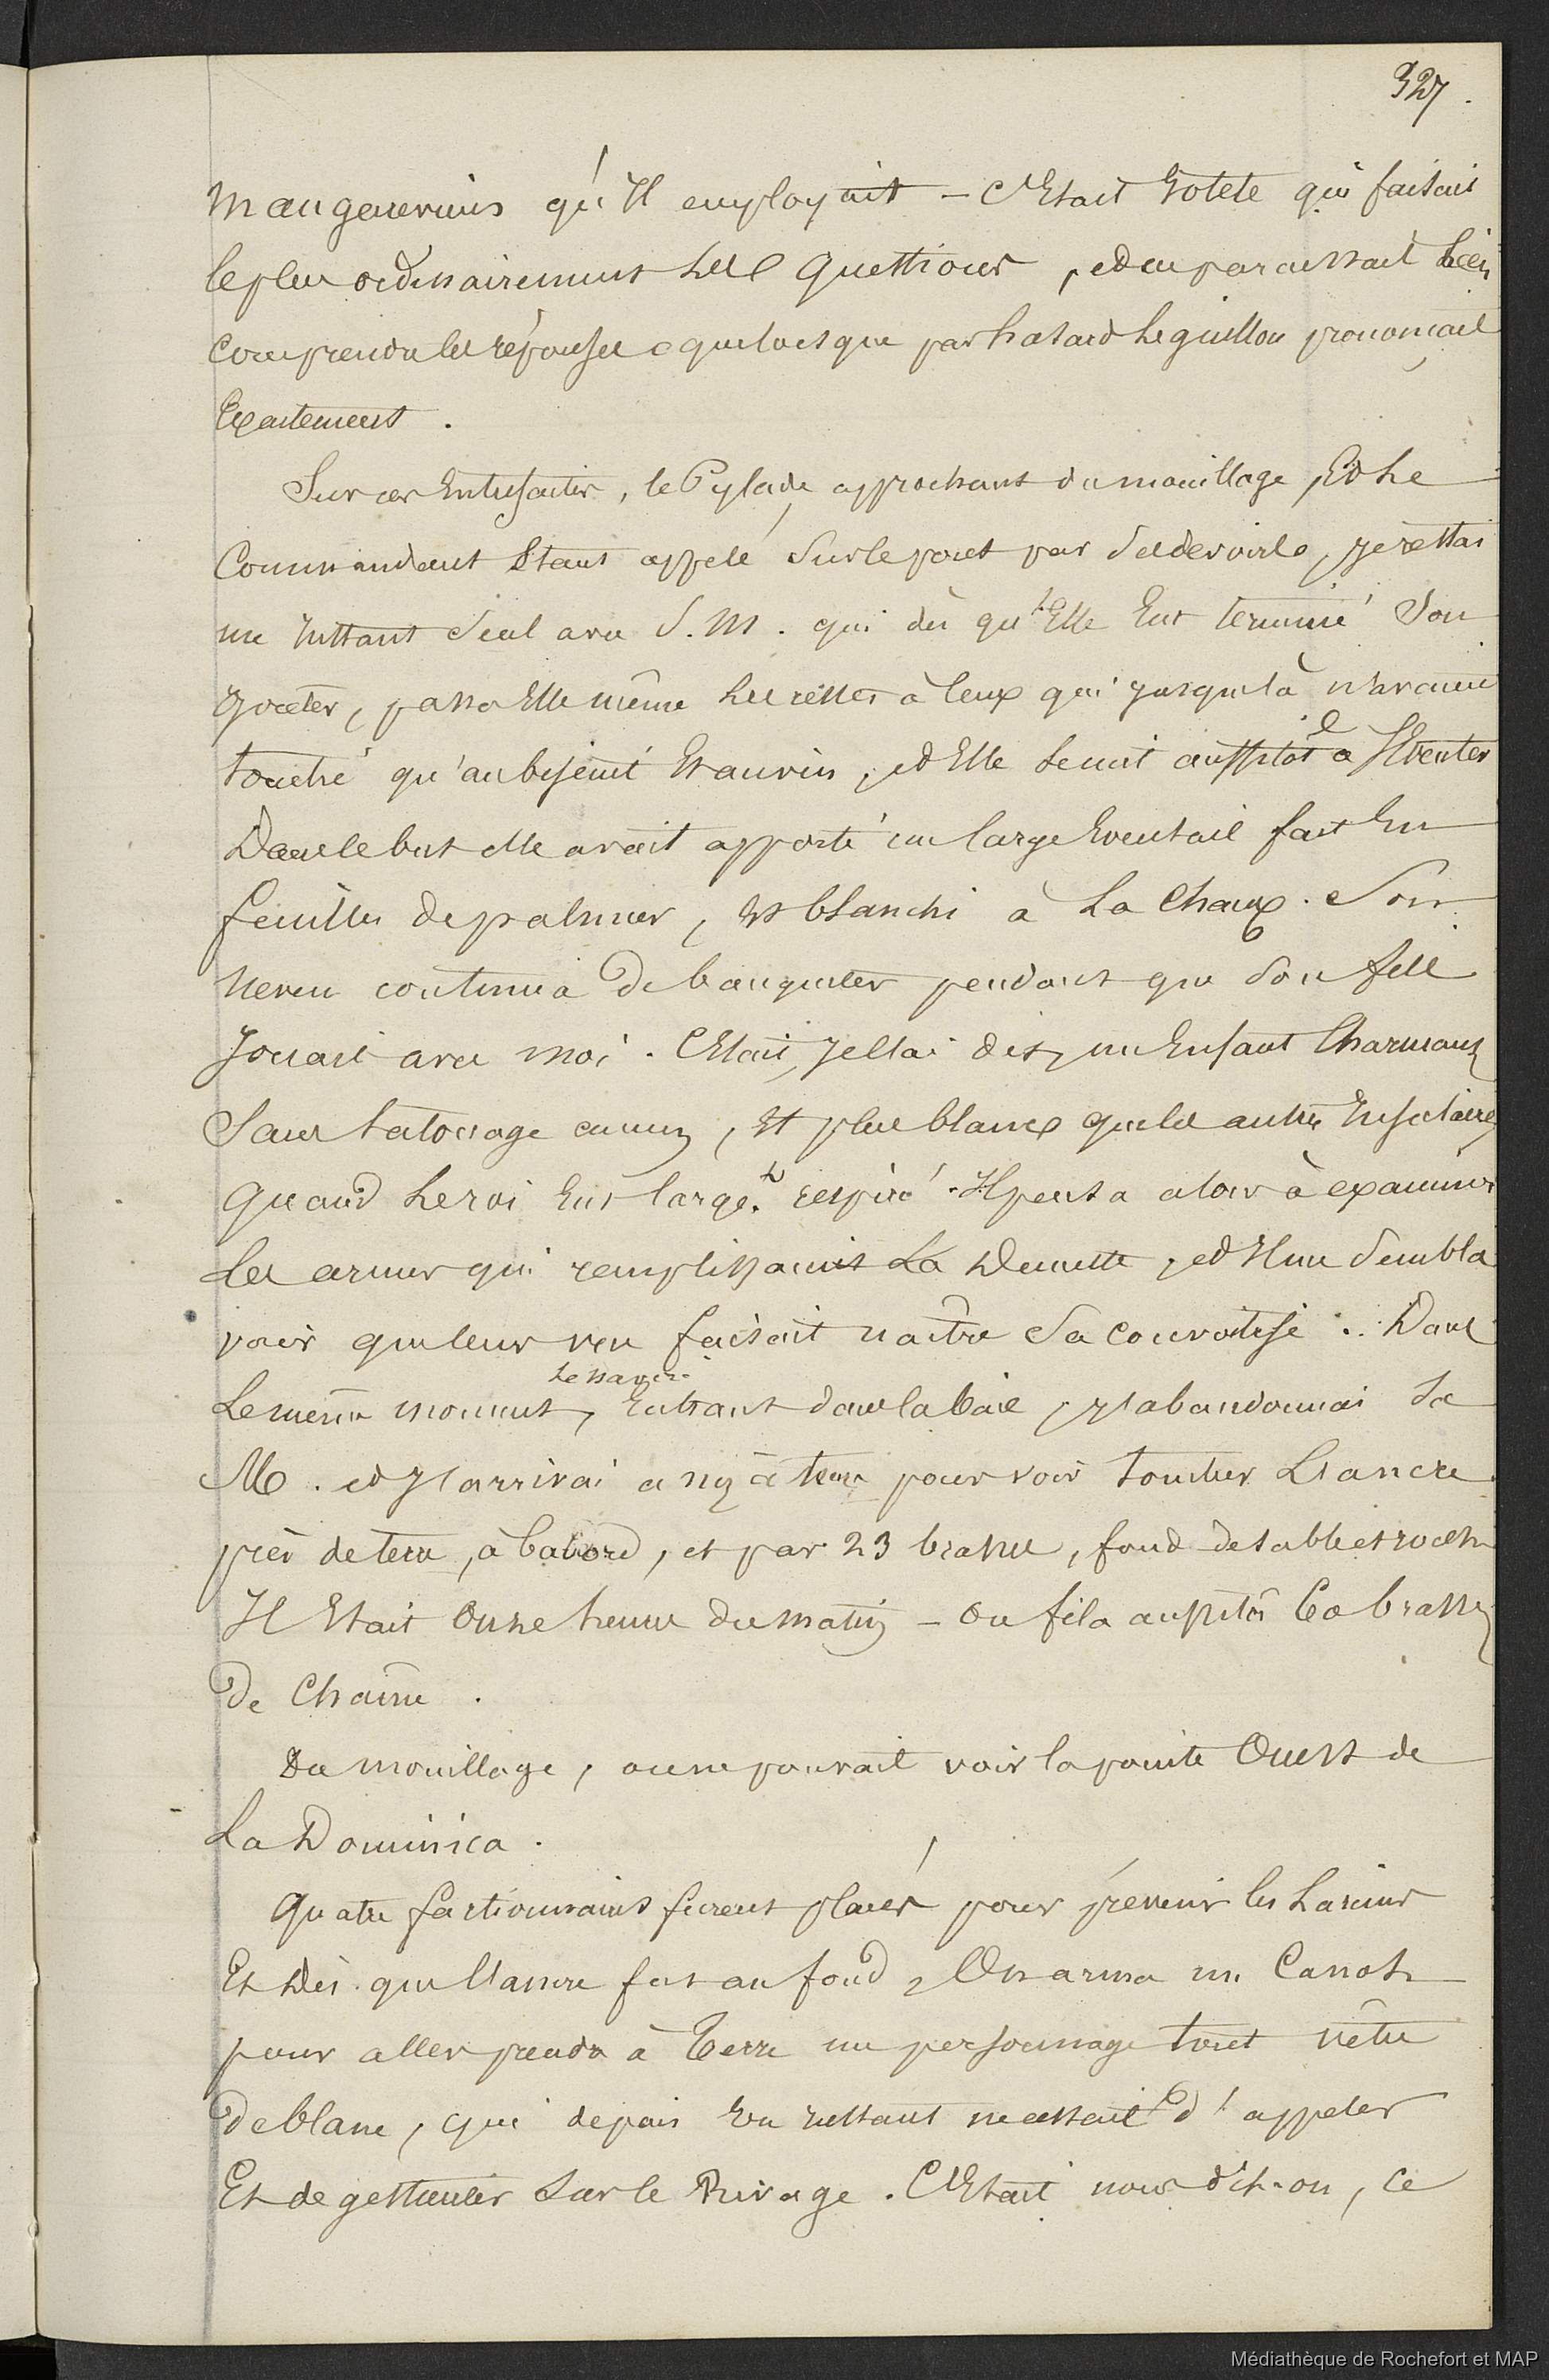 327.
qu'Il employait — C'Etait Totete qui faisait
le plus ordinairement Les Questions, et en paraissait bien
comprendre les réponses que lorsque par hasard Leguillou prononçait
Exactement.
Sur ces Entrefaites, le Pylade approchant du mouillage, Et Le
Commandant Etant appelé Sur le pont par Ses devoirs, je restai
un Instant Seul avec S. M. qui dès qu'Elle Eut terminé Son
goûter, passa Elle même Les restes à Ceux qui jusque là n'avaient
touché qu'au biscuit Et au vin, et Elle Se mit aussitôt à S'Eventer
Dans le but elle avait apporté un large Eventail fait En
feuilles de palmier, Et blanchi à La Chaux. Son
Neveu continua de banqueter pendant que Son fils
Jouait avec moi. C'Etait, Je l'ai dit, un Enfant Charmant
Sans tatouage aucun, Et plus blanc que les autres Insulaires
Quand Le roi Eut largt. respiré. Il pensa alors à examiner
Les armes qui remplissaient La Dunette, et Il me Sembla
voir que leur vue faisait naître Sa convoitise .. Dans
Le navire
Le même moment, Entrant dans la baie, j'abandonnai Sa
M. et J'arrivai assez à tems pour voir tomber L'ancre
près de terre, à babord, et par 23 brasses, fond de sable et roches
Il Etait Onze heures du matin — On fila aussitôt 60 brasses
De Chaîne.
Du mouillage, on ne pouvait voir la pointe Ouest de
La Dominica.
Quatre factionnaires furent placés pour prévenir les Larcins
Et Dès que l'ancre fut au fond, On arma un Canot
pour aller prendre à Terre un personnage tout vêtu
De blanc, qui depuis un Instant ne cessait d'appeler
Et de gesticuler Sur le Rivage. C'Etait nous dit-on, Ce
Médiathèque de Rochefort et MAP